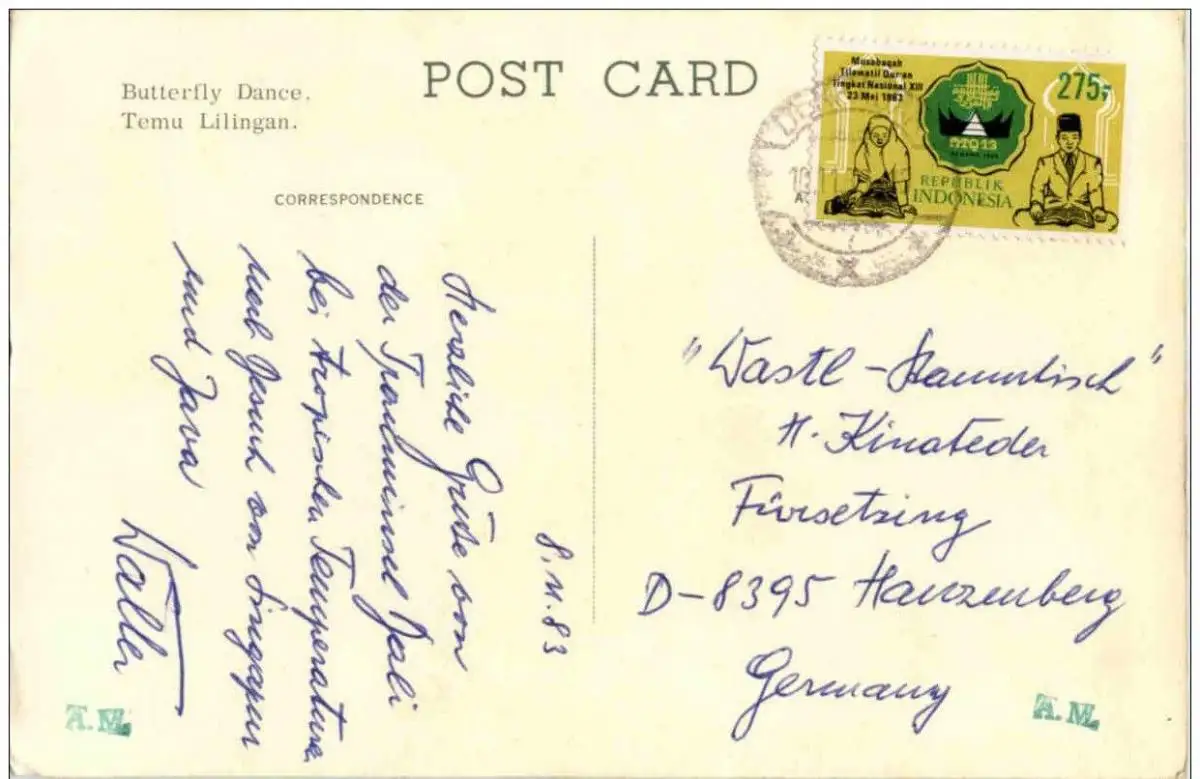 Butterfly Dance.
Temu Lilingan.
POST CARD
CORRESPONDENCE
Musabaqah
Tilawatil Qur'an
Tingkat Nasional XIII
23 Mei 1983
275,-
MTQ 13
PADANG 1983
REPUBLIK
INDONESIA
8.11.83
Herzliche Grüße von
der Trauminsel Bali
bei tropischen Temperaturen
nach Besuch von Singapur
und Java
Walter
"Wastl-Stammtisch"
H. Kinateder
Fürsetzing
D-8395 Hauzenberg
Germany
A.M.
A.M.